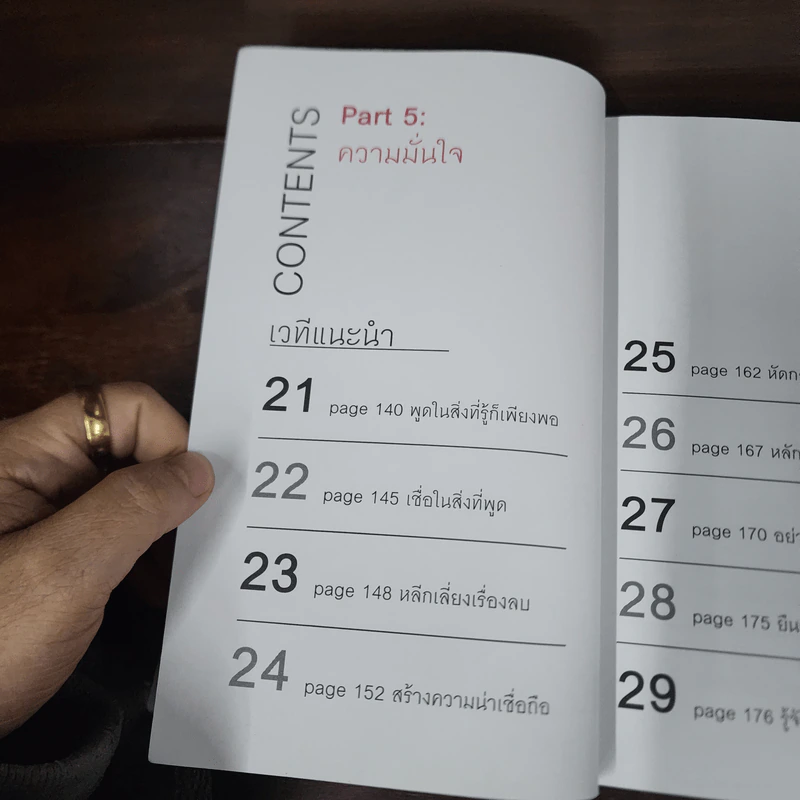 CONTENTS
Part 5:
ความมั่นใจ
เวทีแนะนำ
21 page 140 พูดในสิ่งที่รู้ก็เพียงพอ
22 page 145 เชื่อในสิ่งที่พูด
23 page 148 หลีกเลี่ยงเรื่องลบ
24 page 152 สร้างความน่าเชื่อถือ
25 page 162
26 page 167
27 page 170
28 page 175
29 page 176